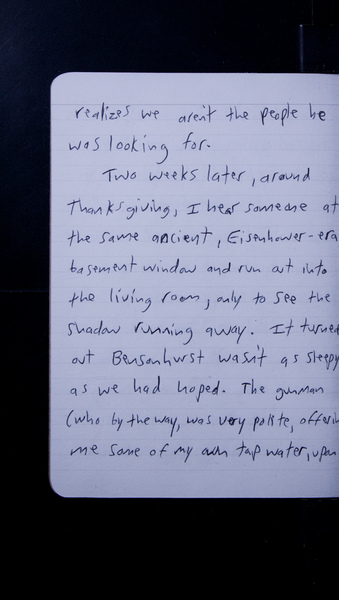 realizes we aren't the people he
was looking for.
Two weeks later, around
Thanksgiving, I hear someone at
the same ancient, Eisenhower-era
basement window and run out into
the living room, only to see the
shadow running away. It turned
out Bensonhurst wasn't as sleepy
as we had hoped. The gunman
(who by the way, was very polite, offerin
me some of my own tap water, upon